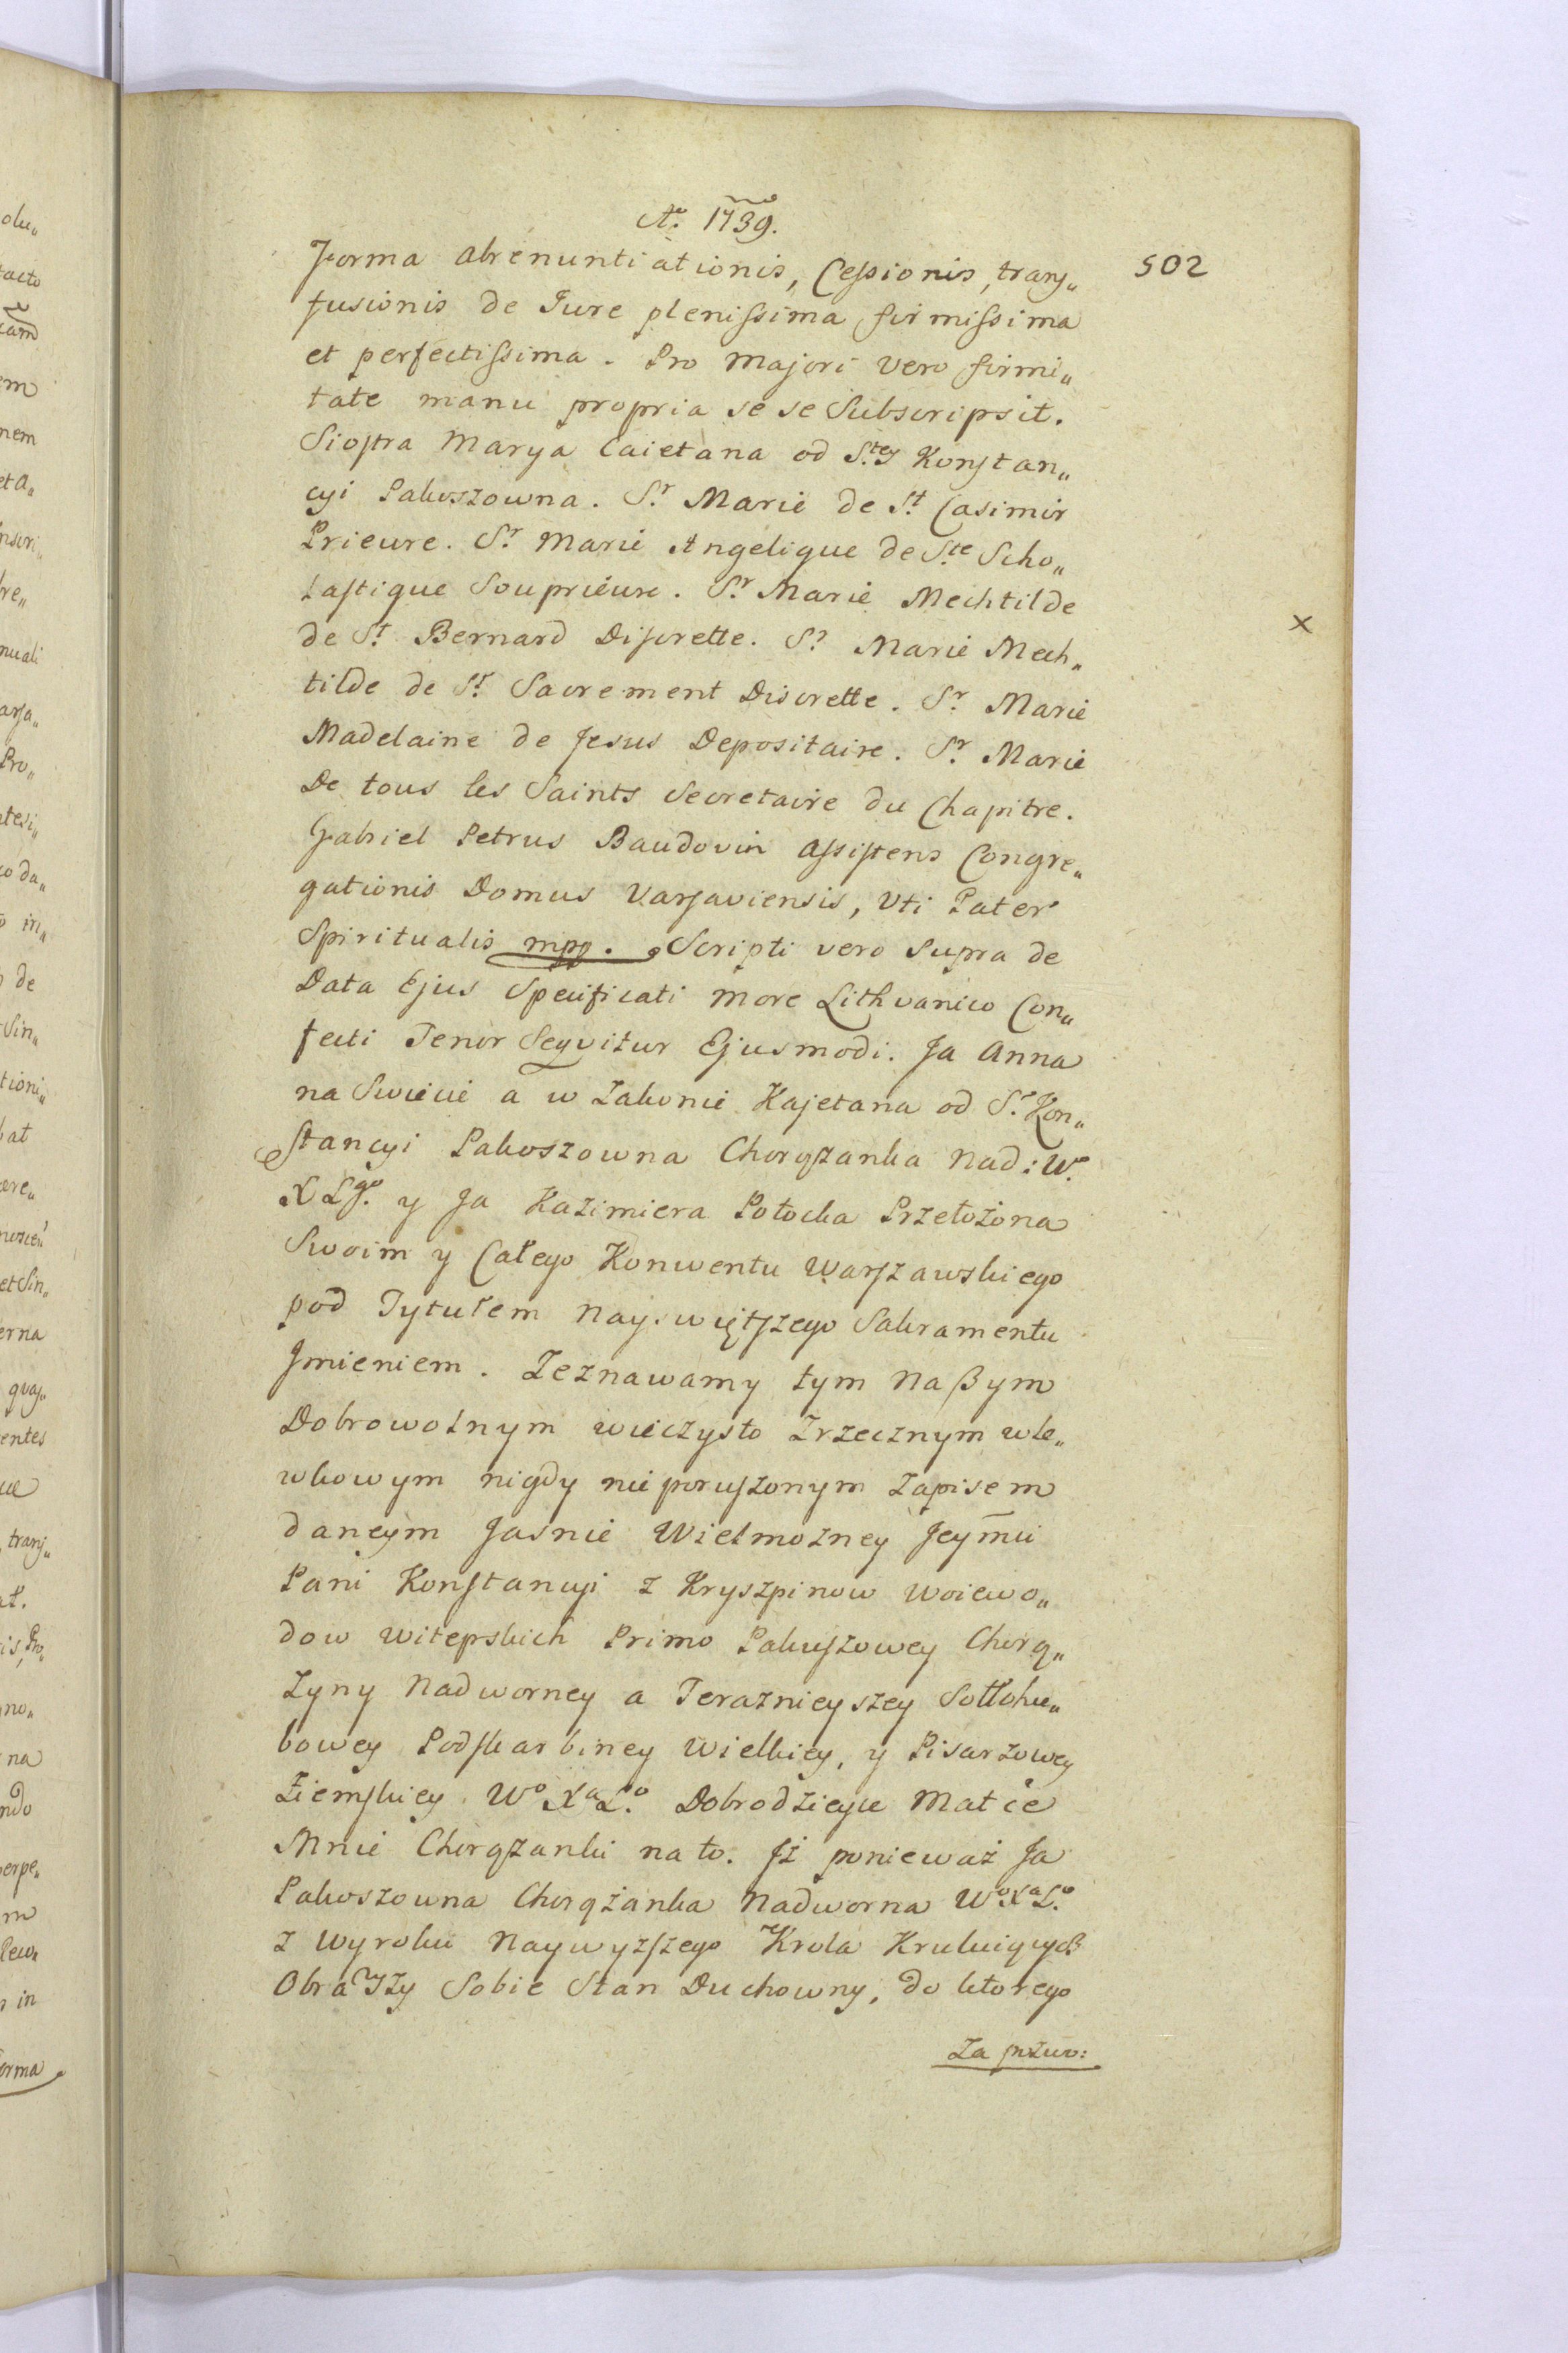 Ao. 1739.
502
Forma abrenuntiationis, Cessionis, trans„
fusionis de Jure plenissima firmissima
et perfectissima. Pro majori vero firmi„
tate manu propria se se Subscripsit.
Siostra Marya Caietana od S.tey Konstan„
cyi Pakoszowna. Sr. Marie de St. Casimir
Prieure. Sr. Marie Angelique de Ste. Scho„
lastique Souprieure. Sr. Marie Mechtilde
de St. Bernard Discrette. Sr. Marie Mech„
tilde de St. Sacrement Discrette. Sr. Marie
Madelaine de Jesus Depositaire. Sr. Marie
De tous les Saints Secretaire du Chapitre.
Gabriel Petrus Baudovin assistens Congre„
gationis Domus Varsaviensis, Uti Pater
Spiritualis mpp. Scripti vero Supra de
Data Ejus Specificati more Lithvanico Con„
fecti Tenor Seqvitur Ejusmodi. Ja Anna
na Swiecie a w Zakonie Kajetana od Sr. Kon„
stancyi Pakoszowna Chorązanka Nad: Wo.
X Lgo. y Ja Kazimiera Potocka Przełożona
Swoim y Całego Konwentu Warszawskiego
pod Tytułem Nayswiętszego Sakramentu
Jmieniem. Zeznawamy tym Naßym
Dobrowolnym wieczysto Zrzecznym wle„
wkowym nigdy nieporuszonym Zapisem
daneym Jasnie Wielmozney Jeymci
Pani Konstancyi z Kryszpinow Woiewo„
dow Witepskich Primo Pakuszowey Chorą„
zyny Nadworney a Teraznieyszey Sołłohu„
bowey Podskarbiney Wielkiey, y Pisarzowey
Ziemskiey Wo Xa Lo. Dobrodzieyce Matce
Mnie Chorązanki na to. Jż ponieważ Ja
Pakoszowna Chorążanka Nadworna Wo Xa Lo.
z wyroku Naywyzszego Krola Krolujących
Obrałszy Sobie Stan Duchowny, do ktorego